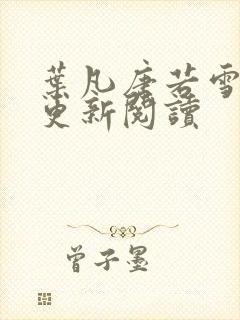 葉凡唐若雪
更新閱讀
曾子墨